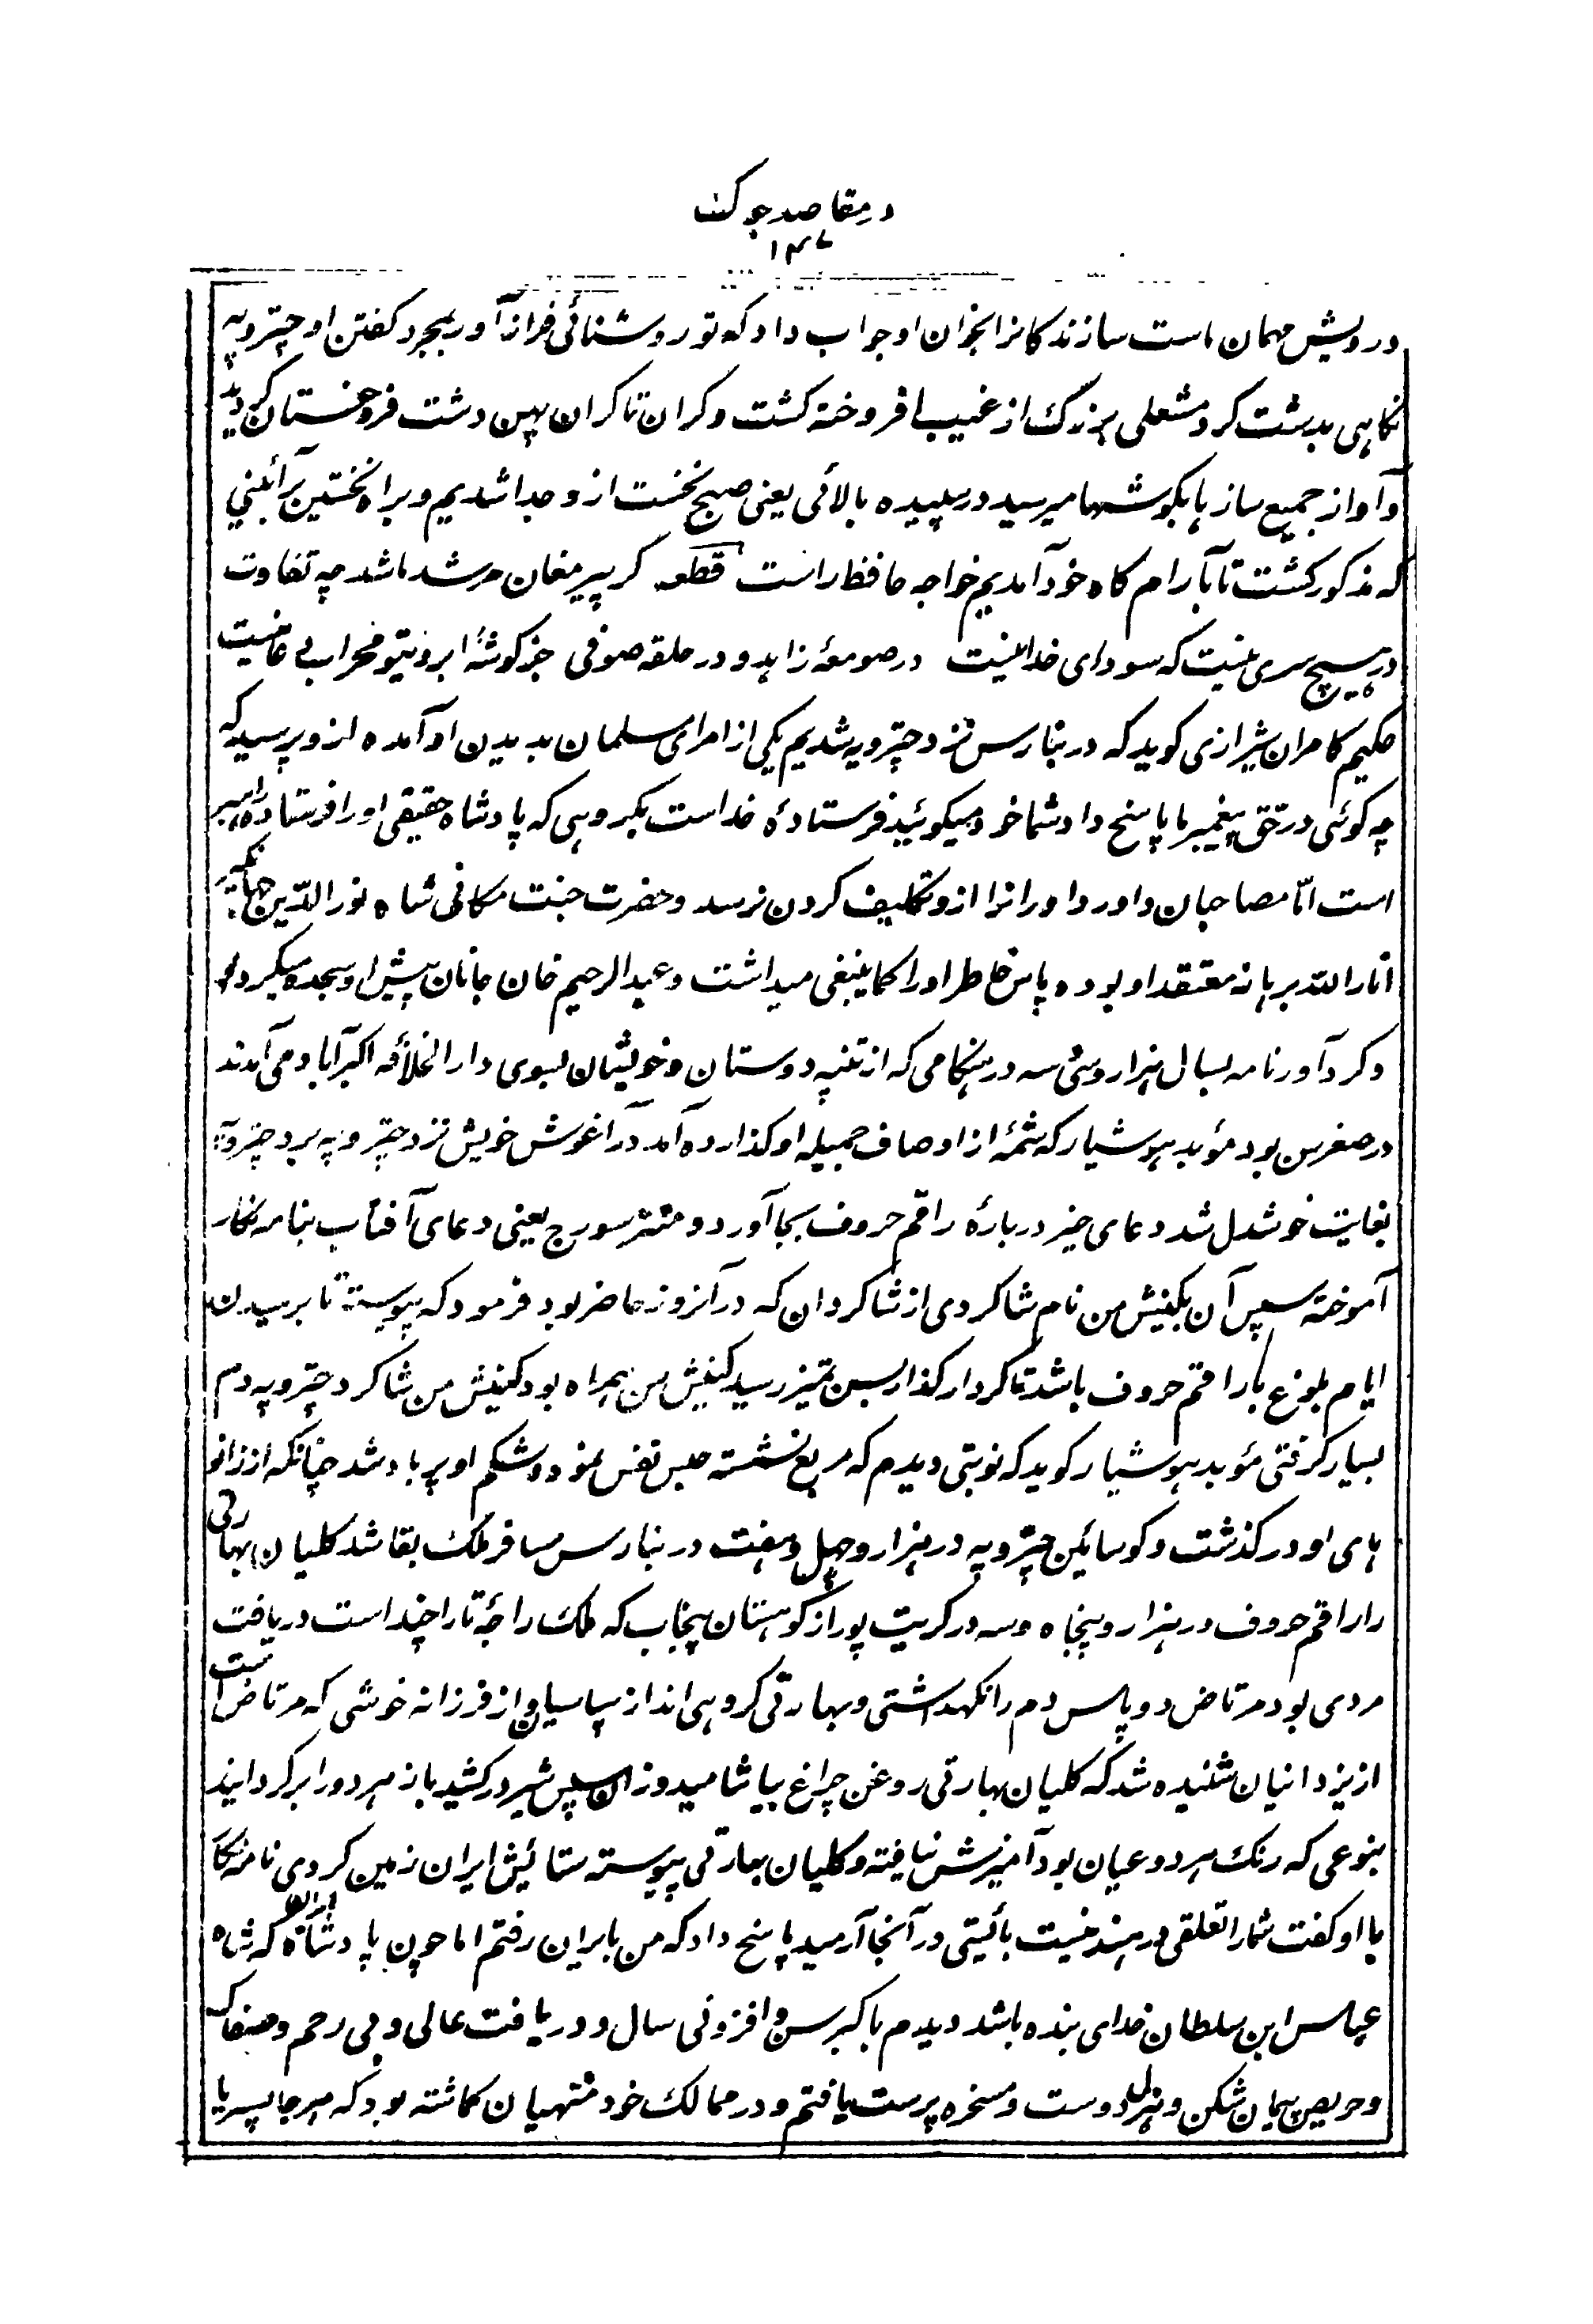 در مقاصد جوکیه
۱۴۷
درویش مهمان ماست سازندکانرا بخوان او جواب داد که تو روشنائی فراز آور بمجرد کفتن او چتروپه
نکاهی بدشت کرد مشعلی بزرک از غیب افروخته کشت و کران تا کران پهن دشت فروغستان کردید
و آواز جمیع سازها بکوشها میرسید در سپیده بالائی یعنی صبح نخست ازو جدا شدیم و براه نخستین برآئینی
که مذکور کشت تا بآرام کاه خود آمدیم خواجه حافظ راست قطعه کر پیر مغان مرشد ما شد چه تفاوت
در هیچ سری نیست که سودای خدا نیست در صومعۀ زاهد و در حلقه صوفی جز کوشۀ ابروی تو محراب دعا نیست
حکیم کامران شیرازی کوید که در بنارس نزد چتروپه شدیم یکی از امرای مسلمان بدیدن او آمده ازو پرسید که
چه کوئی در حق پیغمبر ما پاسخ داد شما خود میکوئید فرستادۀ خداست بکروهی که پادشاه حقیقی او را فرستاده راهبر
است امّا مصاحبان داور داورانرا ازو تکلیف کردن نرسد و حضرت جنت مکانی شاه نورالدّین جهانکیر
انارالله برهانه معتقد او بوده پاس خاطر او را کما ینبغی میداشت و عبدالرحیم خان خانان پیش او سجده میکرد
و کردآور نامه بسال هزار و سی سه در هنکامی که از پتنه دوستان و خویشان بسوی دارالخلافه اکبرآباد می آمدند
در صغر سن بود مؤبد هوشیار که شمۀ از اوصاف جمیله او کذارده آمد در آغوش خویش نزد چتروپه برد چتروپه
بغایت خوشدل شد دعای خیر دربارۀ راقم حروف بجا آورد و منتر سورج یعنی دعای آفتاب بنامه نکار
آموخته سپس آن بکنیش من نام شاکردی از شاکردان که در آنروز حاضر بود فرمود که پیوسته تا برسیدن
ایام بلوغ با راقم حروف باشد تا کردار کذار بسن تمیز رسید کنیش من همراه بود کنیش من شاکرد چتروپه دم
بسیار کرفتی مؤبد هوشیار کوید که نوبتی دیدم که مربع نشسته حبس نفس نمود و شکم او پر باد شد چنانکه از زانو
های او در کذشت و کوسائین چتروپه در هزار و چهل و هفت در بنارس مسافر ملک بقا شد کلیان بهارتی
را راقم حروف در هزار و پنجاه و سه در کریت پور از کوهستان پنجاب که ملک راجۀ تاراچند است دریافت
مردی بود مرتاض دو پاس دم را نکهداشتی و بهارتی کروهی اند از سیاسیان و از فرزانه خوشی که مرتاض است
از یزدانیان شنیده شد که کلیان بهارتی روغن چراغ بیاشامید و زان سپس شیر در کشید باز هر دو را برکردانید
بنوعی که رنک هر دو عیان بود آمیزش نیافته و کلیان بهارتی پیوسته ستائیش ایران زمین کردی نامه نکار
با او کفت شما را تعلقی در هند نیست بائیستی در آنجا آرمید پاسخ داد که من بایران رفتم اما چون پادشاه ایرانرا که شاه
عباس ابن سلطان خدای بنده باشد دیدم با کبر سن و افزونی سال و دریافت عالی و بی رحم و سفاک
و حریص پیمان شکن و هزل دوست و مسخره پرست یافتم و در ممالک خود منهیان کماشته بود که هر جا پسر یا